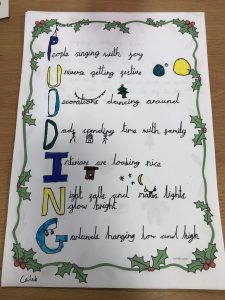 People singing with joy
Universe getting festive
Decorations dancing around
Dads spending time with family
Interiors are looking nice
Night falls and makes lights
glow bright
Garlands hanging low and high
Caleb